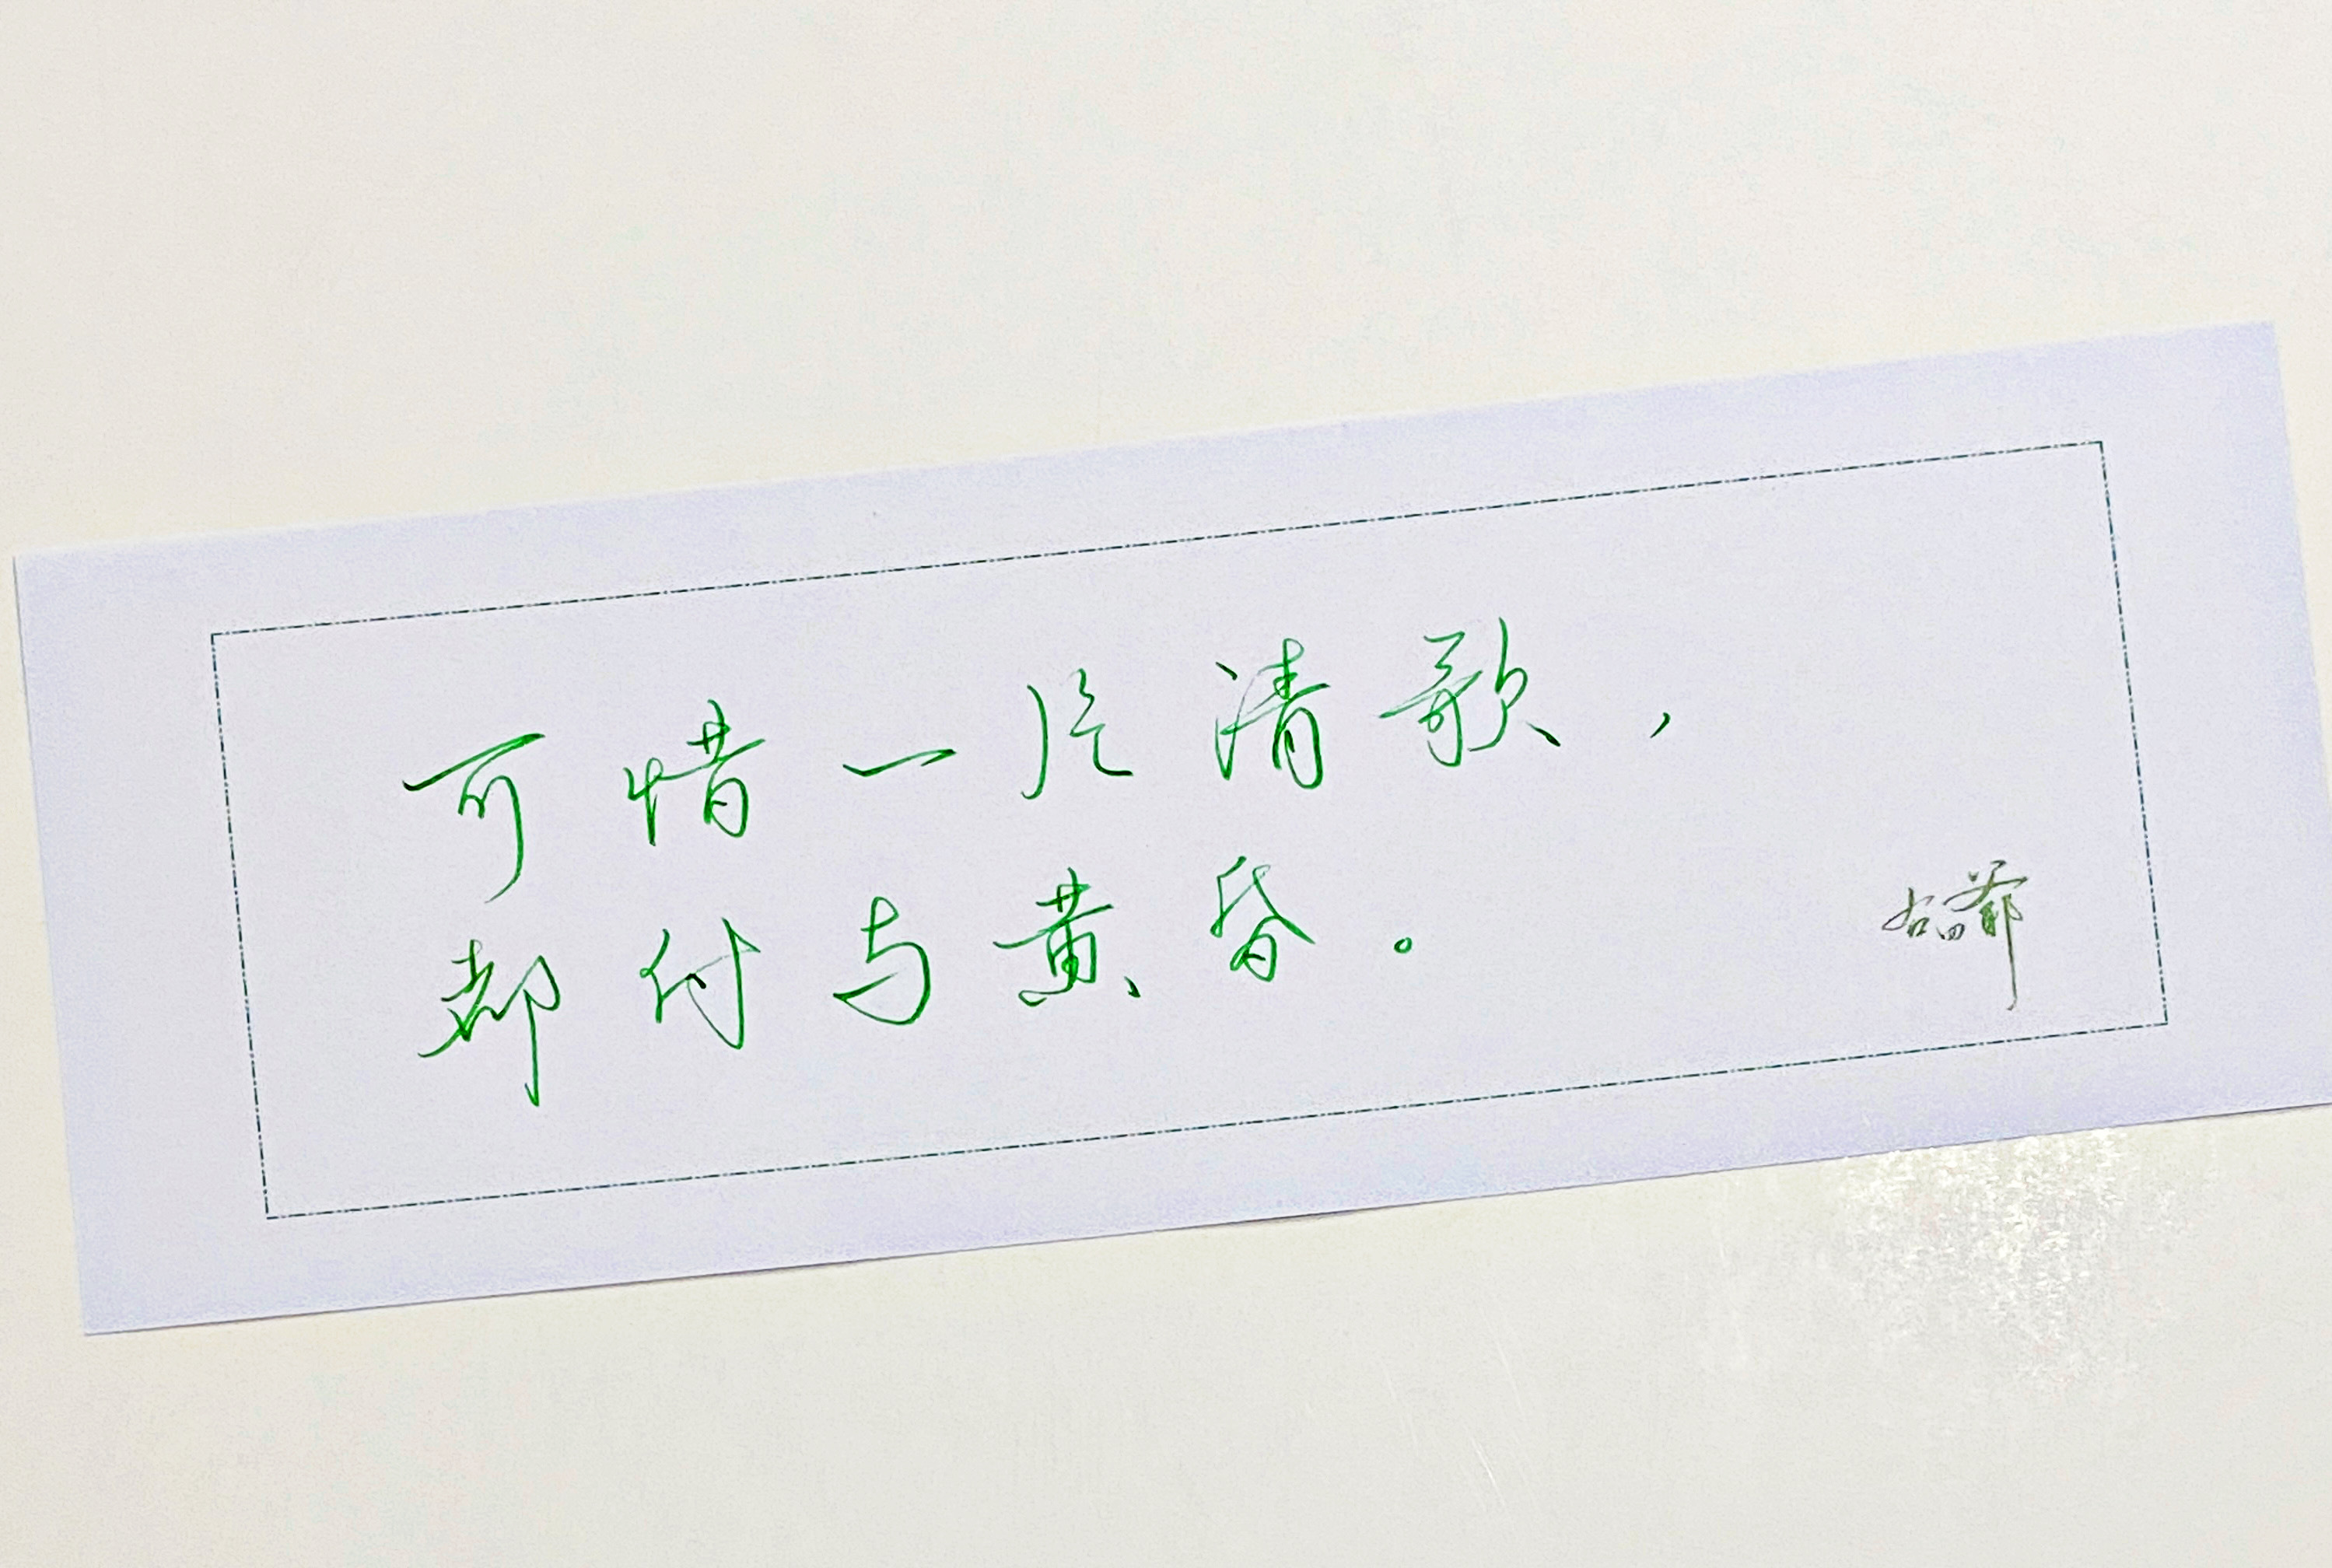 可惜一片清歌，
都付与黄昏。